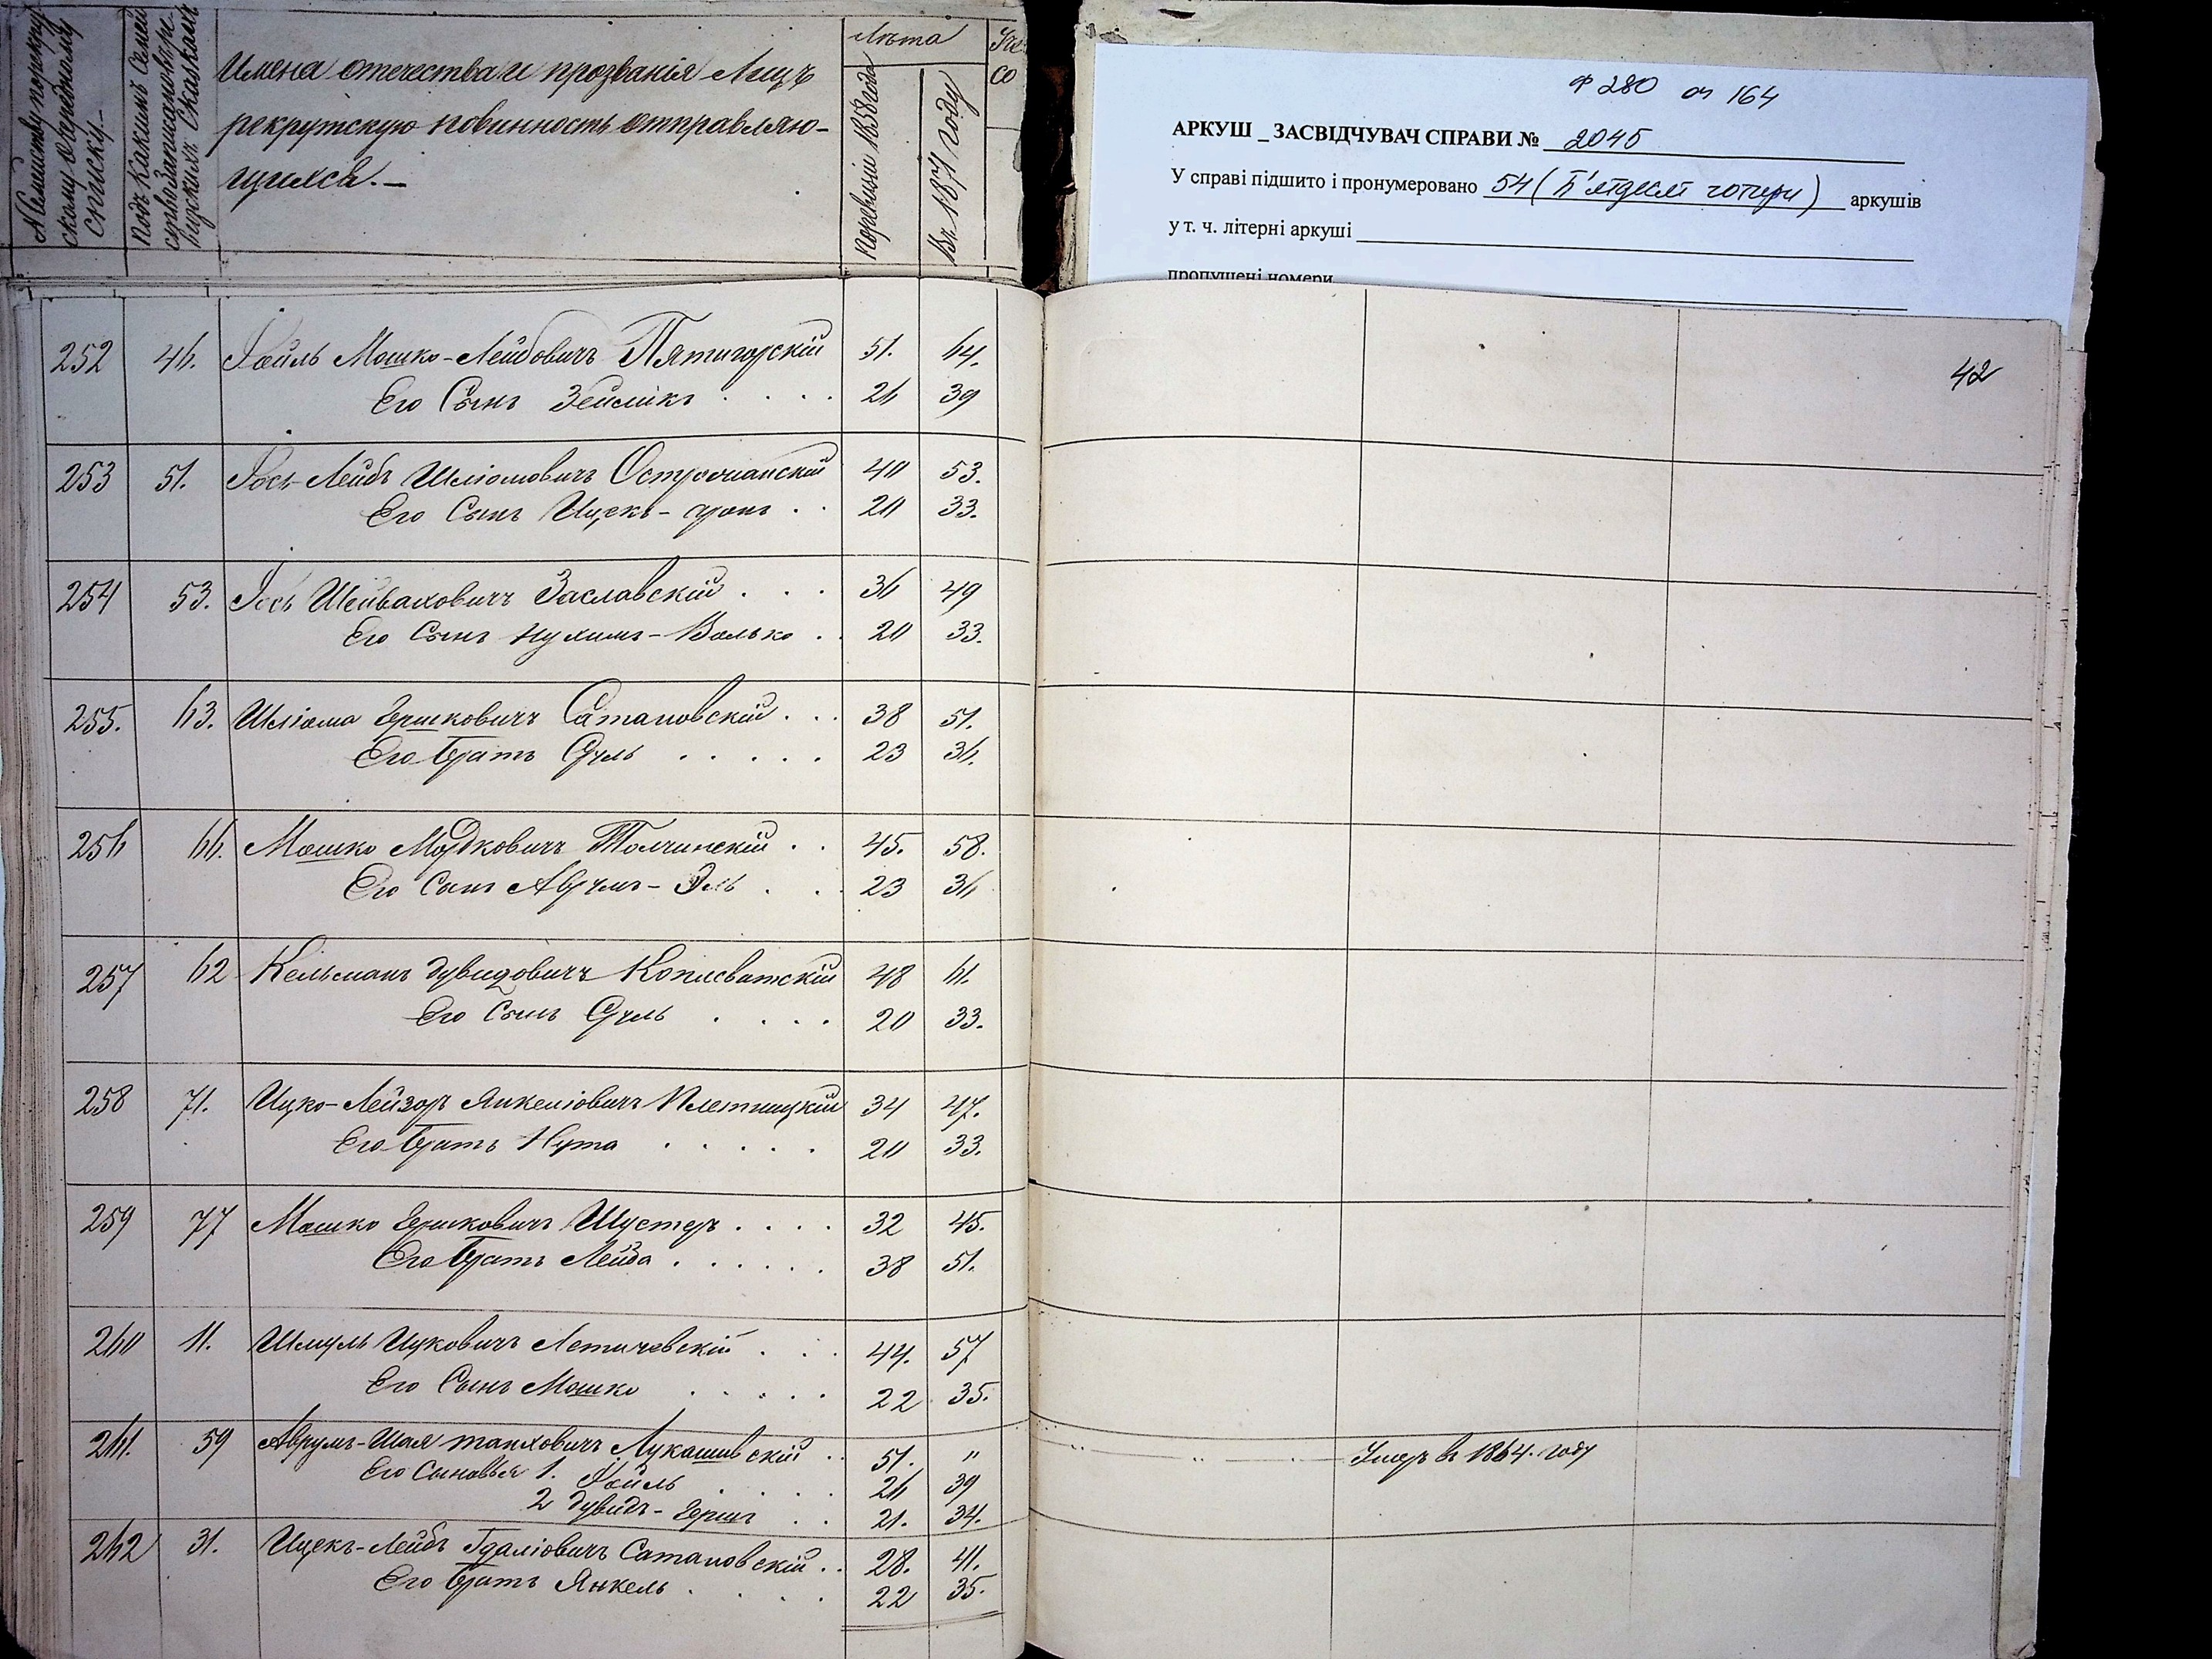 № Семейству по рекрутскому очередному списку.—
Подъ какимъ № Семей
ревизскихъ Сказкахъ
Имена отечества и прозванія Лицъ
рекрутскую повинность отправляю-
щихся.—
Лѣта
По ревизіи 1858 года
Въ 1871 году
со
Ф 280 оп 164
АРКУШ _ ЗАСВІДЧУВАЧ СПРАВИ № 2045
У справі підшито і пронумеровано 54 (П'ятдесят чотири) аркушів
у т. ч. літерні аркуші
пропущені номери
42
252 46. Іойль Мошко-Лейбовичъ Пятигорскій 51. 64.
Его Сынъ Зейликъ . . . . 26 39
253 51. Іось-Лейбъ Шліомовичъ 40 53.
Его Сынъ Ицекъ- . . 20 33.
254 53. Іось Шейваховичъ Заславскій . . . 36 49
Его Сынъ Нухимъ-Волько . 20 33.
255. 63. Шліома Гершковичъ Сатановскій . . . 38 51.
Его братъ Сруль . . . . . 23 36.
256 66. Мошко Мордковичъ Толчинскій . . 45. 58.
Его Сынъ Аврумъ-Эль . . 23 36
257 62 Кельманъ Дувидовичъ Кописватскій 48 61.
Его Сынъ Сруль . . . . 20 33.
258 71. Ицко-Лейзоръ Янкеліовичъ Плетницкій 34 47.
Его братъ Нута . . . . . 20 33.
259 77 Мошко Гершковичъ Шустеръ . . . . 32 45.
Его братъ Лейба . . . . . . 38 51.
260 11. Шмуль Ицковичъ Летичевскій . . . 44. 57
Его Сынъ Мошко . . . . . 22 35.
261. 59 Аврумъ-Шая Танховичъ Лукашивскій . . 51. " Умеръ въ 1864. году
Его Сыновья 1. Іойль . . . . 26 39
2 Дувидъ-Гершъ . . 21. 34.
262 31. Ицекъ-Лейбъ Гдаліовичъ Сатановскій . . 28. 41.
Его братъ Янкель . . . . 22 35.